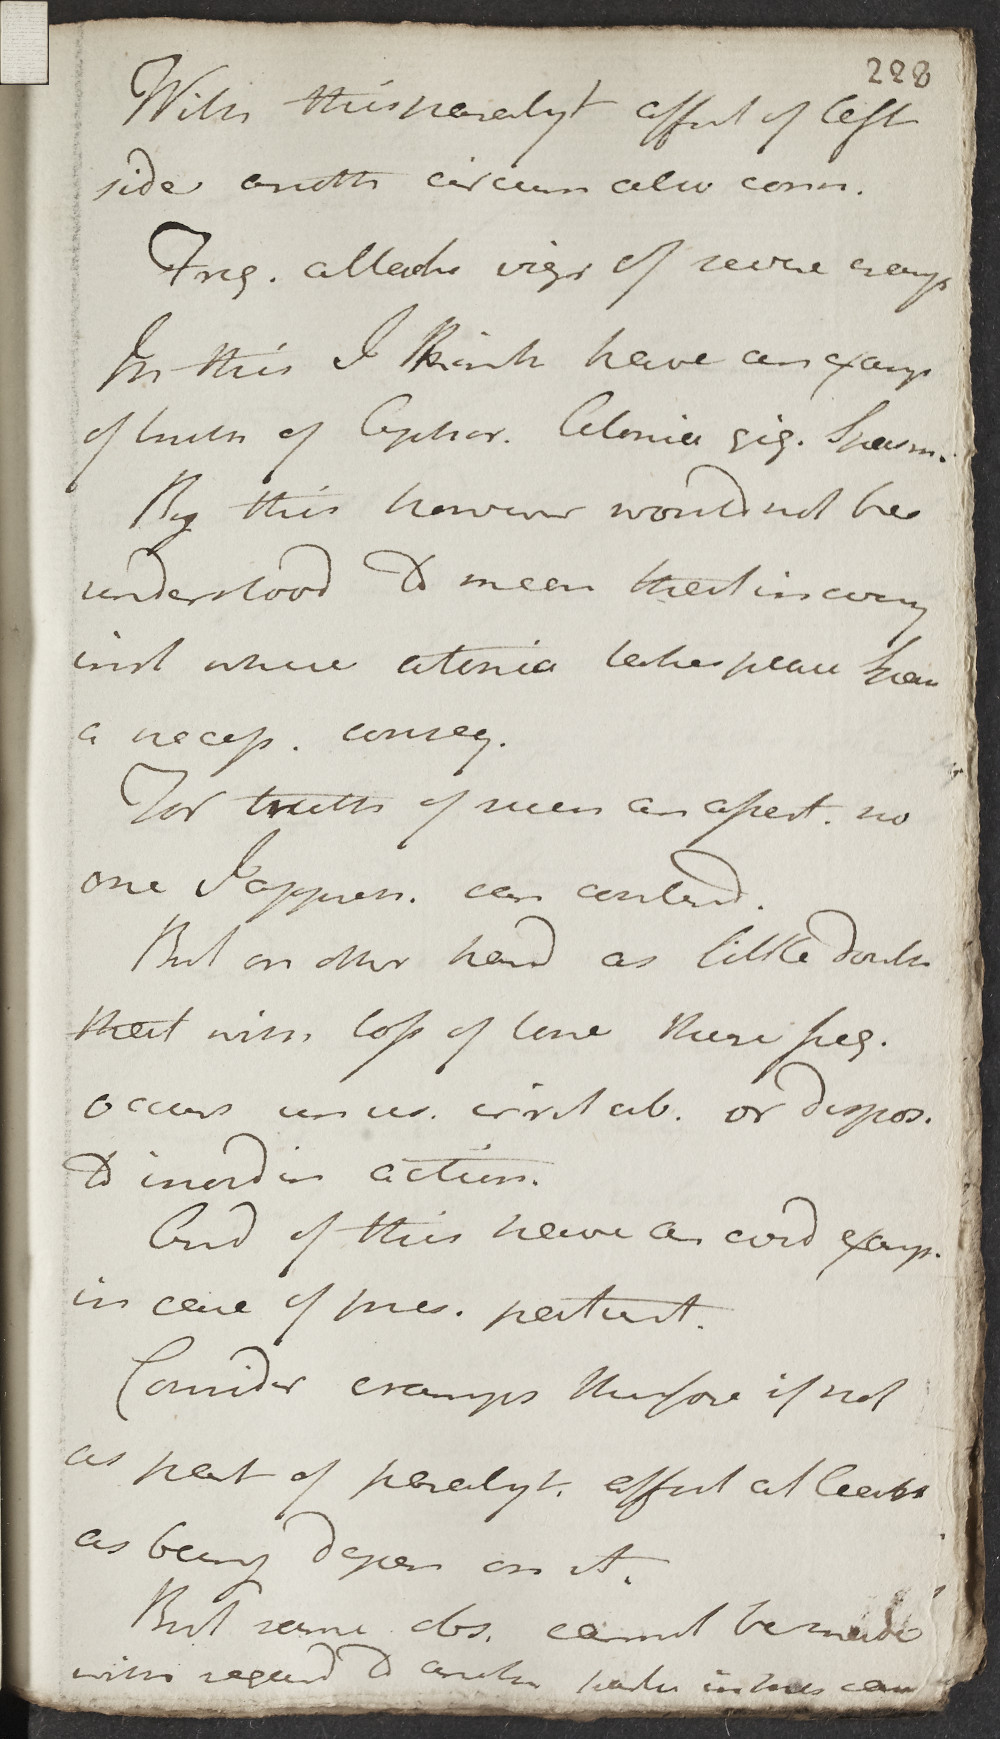 228
With this paralyt affect of left
side anoth circum also conn.
Freq. attacks vigr of severe cramp
In this I think have an examp
of truth of Aphor. Atonia gig. Spasm.
By this however would not be
understood to mean that in every
inst where atonia takes place Spas
a necess. conseq.
For truth of such an assert. no
one I appreh. can contend.
But on other hand as little doubt
that with loss of tone there freq.
occurs unus. irritab. or dispos.
to inordin action.
And of this have an accord examp.
in case of pres. patient.
Consider cramps therefore if not
as part of paralyt. affect at least
as being depen on it.
But same obs. cannot be made
with regard to anoth in this case